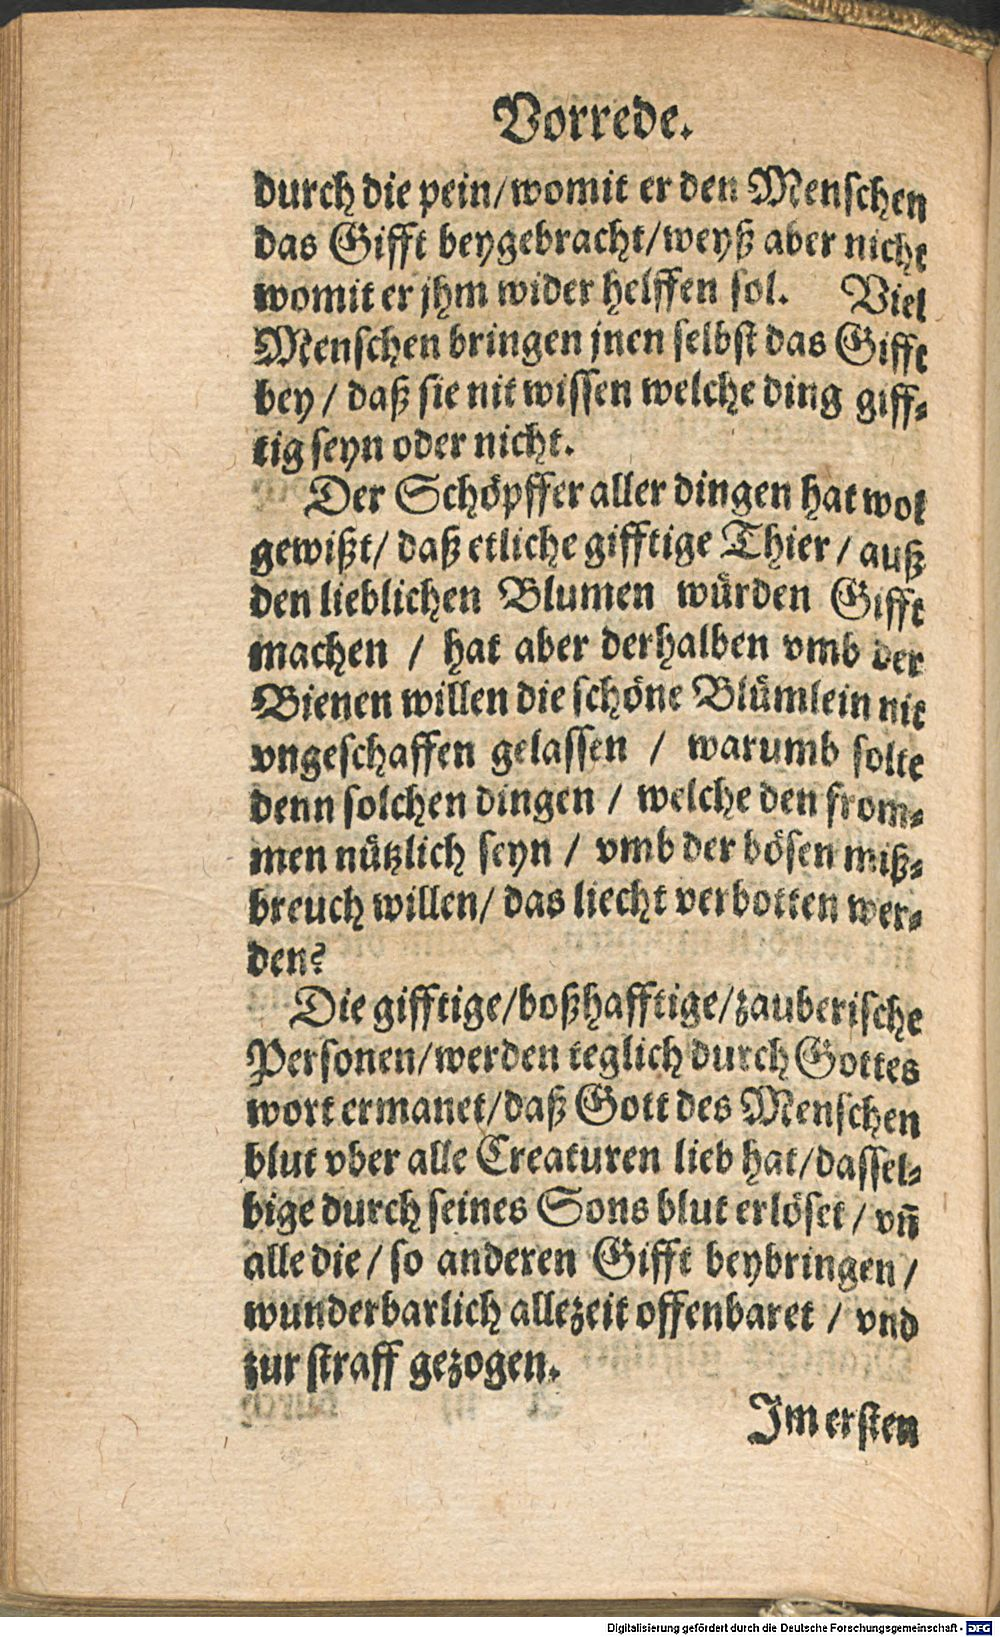 Vorrede.
durch die pein/womit er den Menschen
das Gifft beygebracht/weyß aber nicht
womit er jhm wider helffen sol. Viel
Menschen bringen jnen selbst das Gifft
bey / daß sie nit wissen welche ding giff-
tig seyn oder nicht.
Der Schöpffer aller dingen hat wol
gewißt/ daß etliche gifftige Thier / auß
den lieblichen Blumen würden Gifft
machen / hat aber derhalben vmb der
Bienen willen die schöne Blümlein nit
vngeschaffen gelassen / warumb solte
denn solchen dingen / welche den from-
men nützlich seyn / vmb der bösen miß-
breuch willen/ das liecht verbotten wer-
den?
Die gifftige/boßhafftige/zauberische
Personen/werden teglich durch Gottes
wort ermanet/daß Gott des Menschen
blut vber alle Creaturen lieb hat/dassel-
bige durch seines Sons blut erlöset / vn̄
alle die / so anderen Gifft beybringen /
wunderbarlich allezeit offenbaret / vnd
zur straff gezogen.
Im ersten
Digitalisierung gefördert durch die Deutsche Forschungsgemeinschaft - DFG